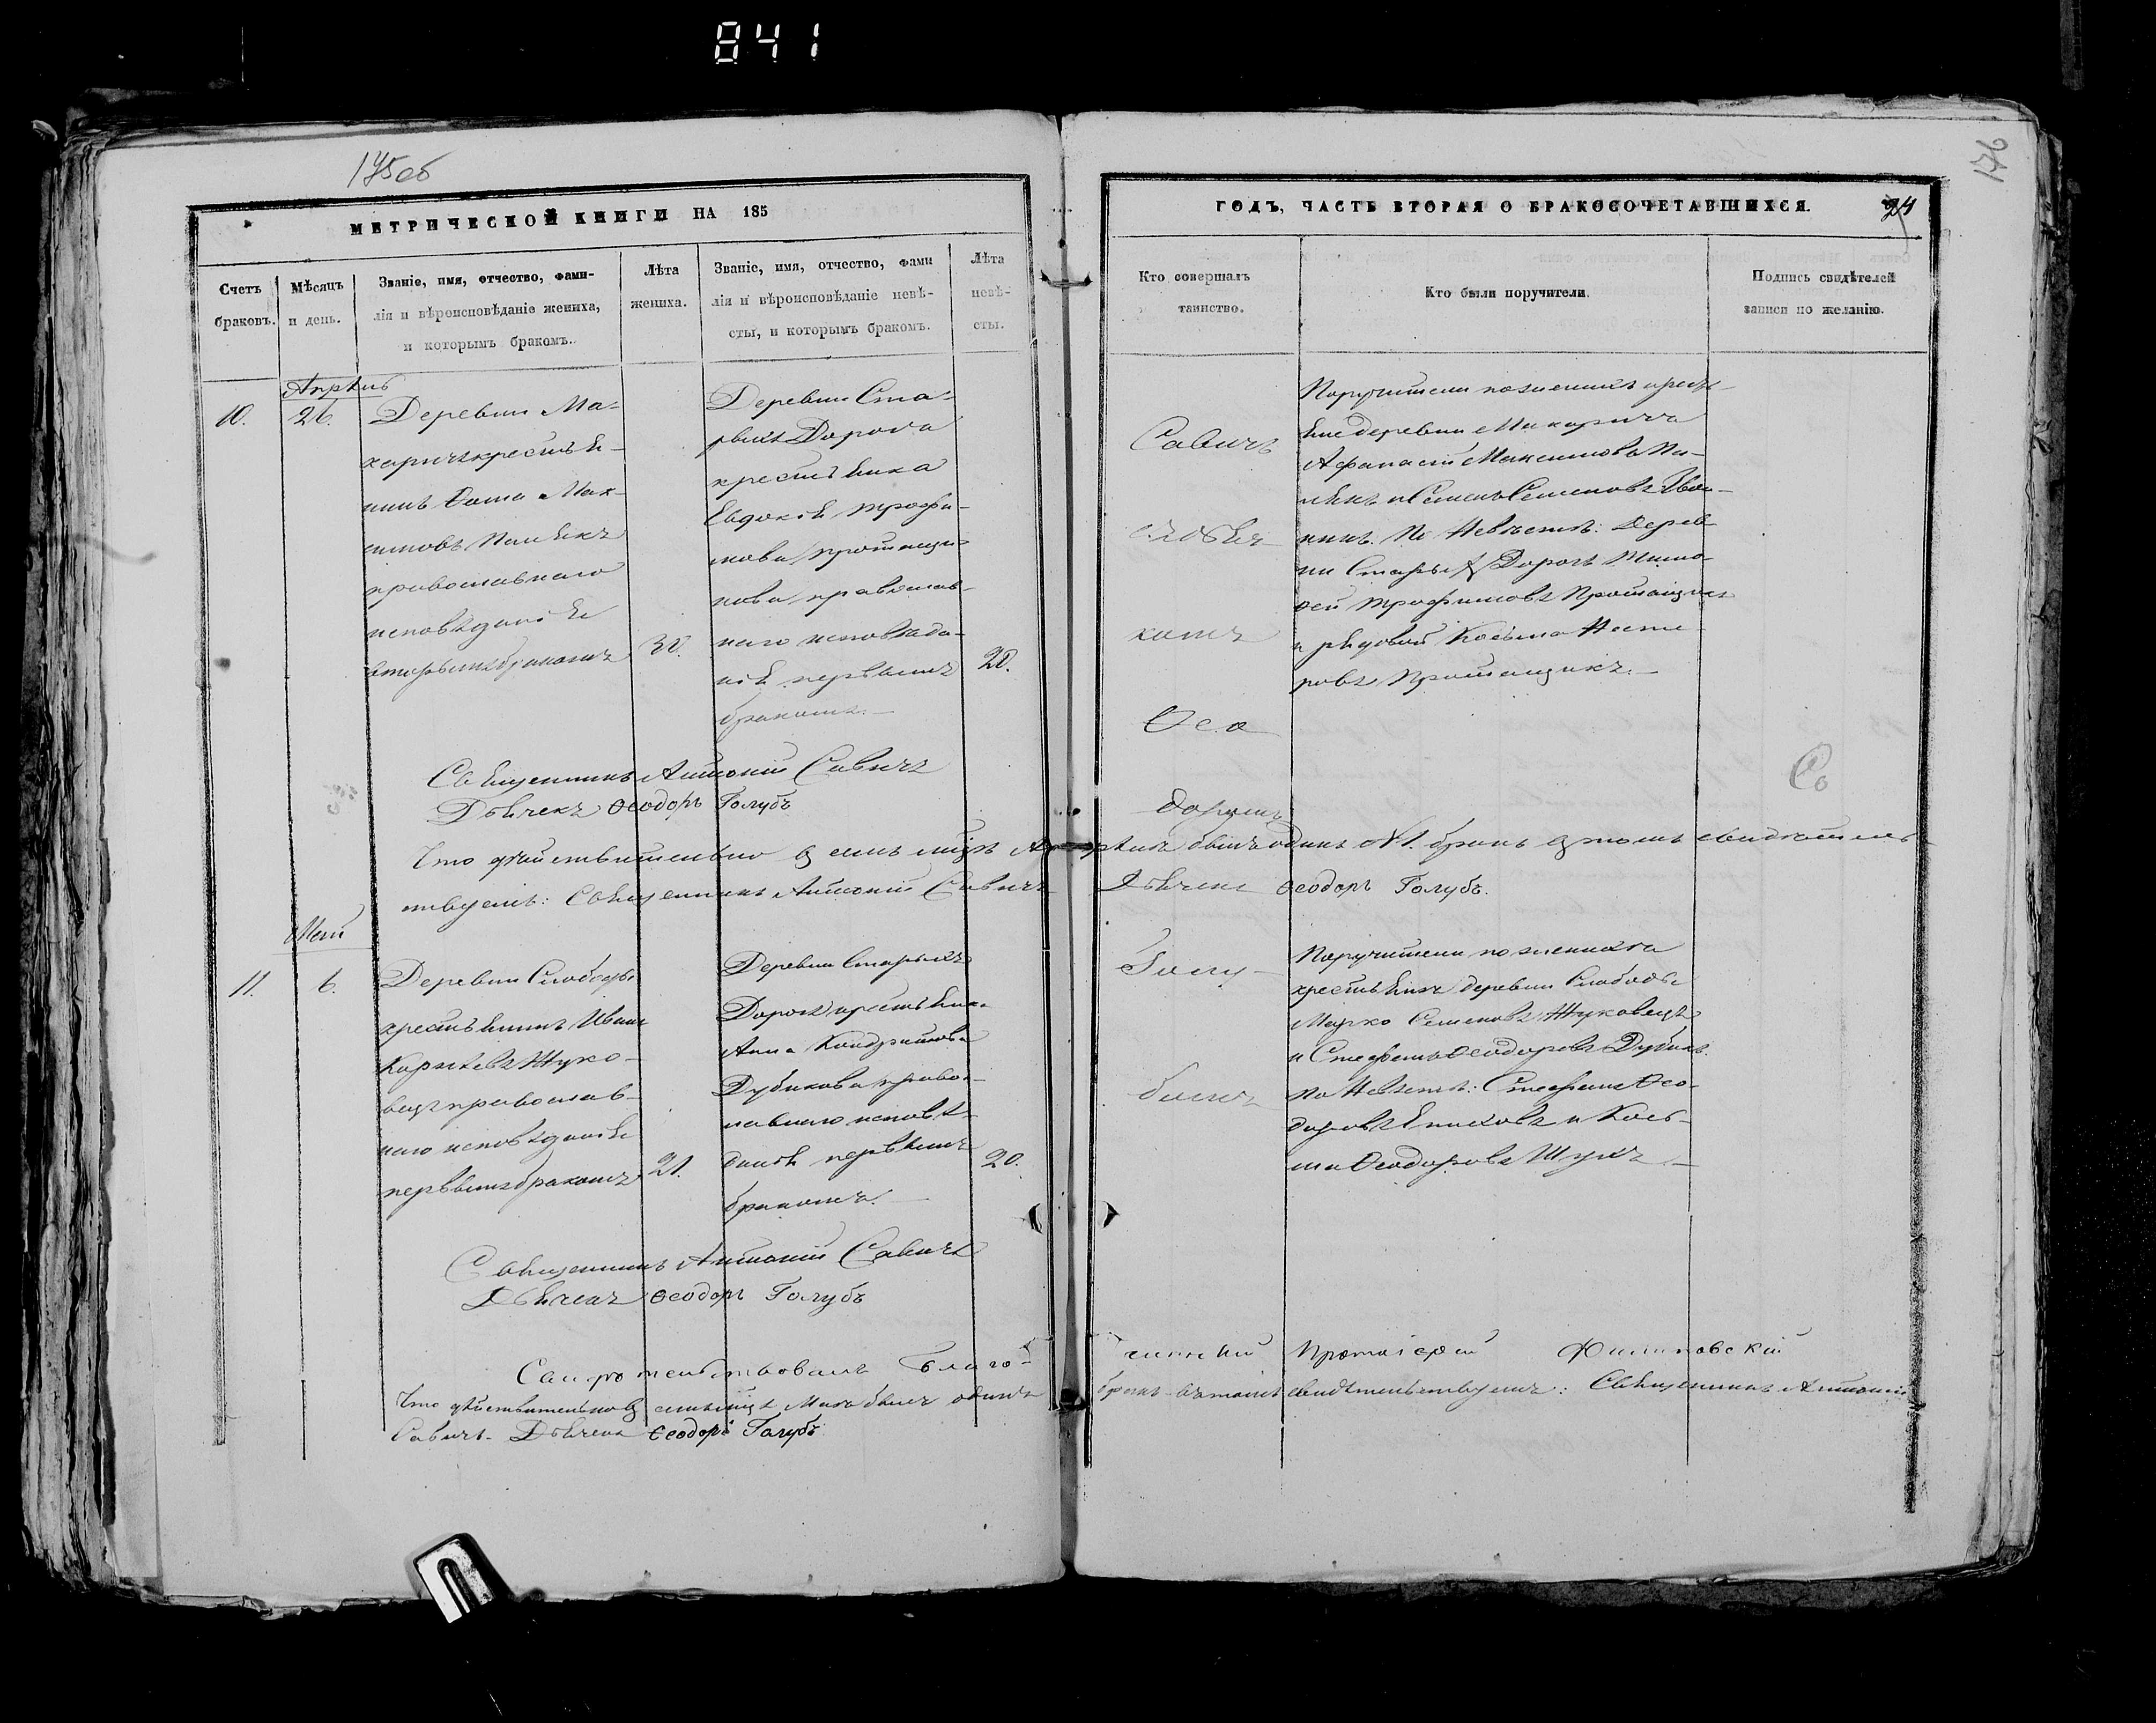 841
175 об
176
МЕТРИЧЕСКОЙ КНИГИ НА 185
ГОДЪ, ЧАСТЬ ВТОРАЯ О БРАКОСОЧЕТАВШИХСЯ.
24
Счетъ браковъ.
Мѣсяцъ и день.
Званіе, имя, отчество, фами-
лія и вѣроисповѣданіе жениха,
и которымъ бракомъ.
Лѣта
жениха.
Званіе, имя, отчество, фами
лія и вѣроисповѣданіе невѣ-
сты, и которымъ бракомъ.
Лѣта
невѣ-
сты.
Кто совершалъ
таинство.
Кто были поручители.
Подпись свидѣтелей
записи по желанію.
Апрѣль
10.
26.
Деревни Ма-
харичъ крестья-
нинъ Ѳома Мак-
симовъ
православнаго
исповѣданія
вторымъ бракомъ
30.
Деревни Ста-
рыхъ Дорогъ
крестьянка
Евдокія Трофи-
мова
православ-
наго исповѣда-
нія первымъ
бракомъ.
20.
Савичъ
съ дья-
комъ
Ѳео
доромъ
Поручители по женихѣ кресть-
яне деревни Махарича
Афанасій Максимовъ
и Семенъ Семеновъ
По Невѣстѣ: Дерев-
ни Старыхъ Дорогъ Тимо-
ѳей Трофимовъ
и рядовой Косьма Несте-
ровъ
Священникъ Антоній Савичъ
Дьячекъ Ѳеодоръ Голубъ
Со
Что дѣйствительно въ семъ м-цѣ Апрѣлѣ былъ одинъ №1. бракъ въ томъ свидѣтель-
ствуемъ: Священникъ Антоній Савичъ Дьячекъ Ѳеодоръ Голубъ.
Май
11.
6.
Деревни Слободы
крестьянинъ Иванъ
Корнѣевъ Жуко-
вецъ православ-
наго исповѣданія
первымъ бракомъ
21.
Деревни Старыхъ
Дорогъ крестьянка
Анна Кондратова
Дубикова право-
славнаго исповѣ-
данія первымъ
бракомъ.
20.
Голу-
бомъ
Поручители по женихѣ
крестьяне деревни Слободы
Марко Семеновъ Жуковецъ
и Стефанъ Ѳеодоровъ
по Невѣстѣ: Стефанъ Ѳео-
доровъ и Кось-
ма Ѳеодоровъ
Священникъ Антоній Савичъ
Дьячекъ Ѳеодоръ Голубъ
Свидѣтельствовалъ Благо-
чинный Протоіерей
Что дѣйствительно въ семъ м-цѣ Маѣ былъ одинъ бракъ въ томъ свидѣтельствуемъ: Священникъ Антоній
Савичъ. Дьячекъ Ѳеодоръ Голубъ